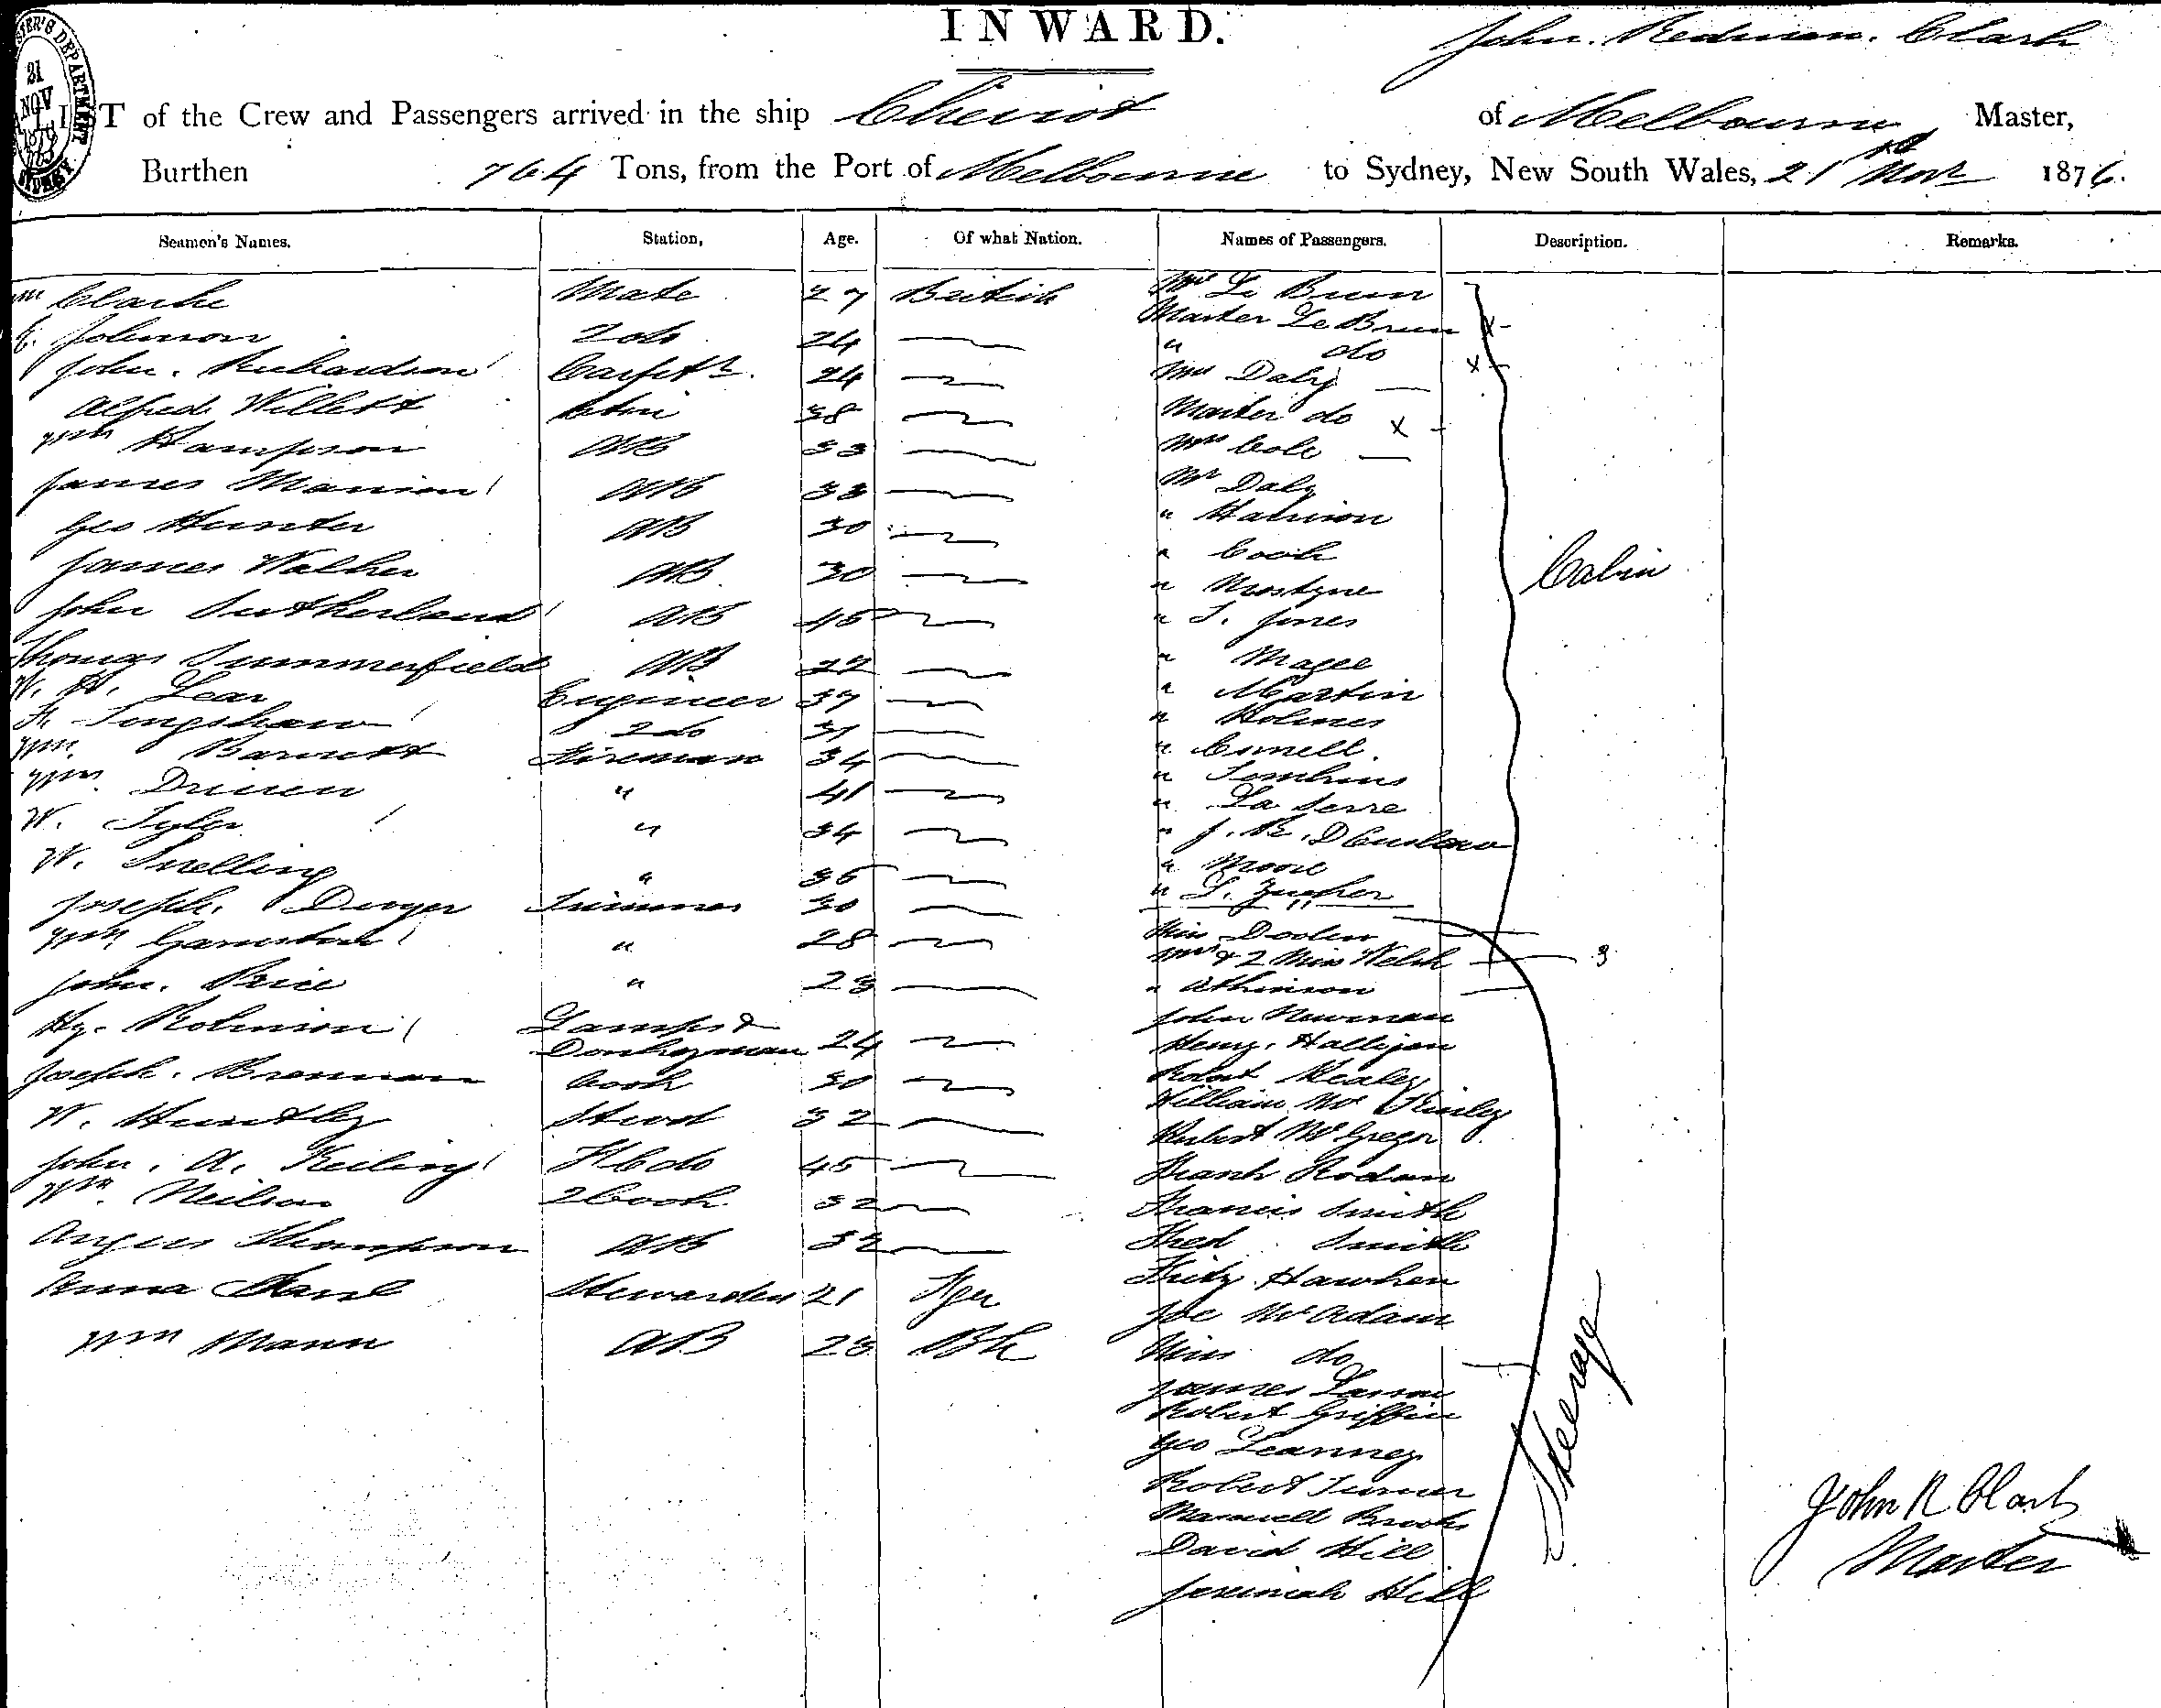 INWARD.
John. Redman. Clark
LIST of the Crew and Passengers arrived in the ship Cheviot of Melbourne Master,
Burthen 764 Tons, from the Port of Melbourne to Sydney, New South Wales, 21st Novr 1876.
Seamen's Names. Station, Age. Of what Nation. Names of Passengers. Description. Remarks.
Wm Clarke Mate 27 British Mrs Le Brun
E. Johnson 2 do 24 Master Le Brun x
John. Richardson Carptr. 24 " do x
Alfred Willett 38 Mrs Daly
Wm Hampson AB 33 Master do x
James Manion AB 33 Mrs Cole
Geo Hunter AB 30 Mr Daly
James Walker AB 30 " Harrison
John Sutherland AB 45 " Cook
Thomas Summerfield AB 22 " Mostyne
W. H. Lear Engineer 37 " T. Jones
H. Longshaw 2 do 31 " Magee
Wm. Barnett Fireman 34 " Martin
Wm. Driven " 41 " Holmes
W. Tyler " 34 "
W. Snelling " 35 " Tomkins
Joseph. Dwyer Trimmer 30 " La Serre
Wm " 28 " J. B.
John. Price " 23 " Moore
Hy. Robinson Lamps & Donkeyman 24 " L.
Joseph. Brennan Cook 30
W. Huntley Stewd 32
John. A. Keiling 45
Wm. Neilson 2 Cook 32
Angus Thompson AB 32
Anna Stewardess 21
Wm Mann AB 23 Bh
Cabin
Miss
Mrs & 2 Miss Welsh 3
" Atkinson
John Newman
Henry. Halligan
Robert Healey
William McKinley
Herbert McGregor
Frank Rodan
Francis Smith
Fred Smith
Fritz Hawken
Joe McAdam
Miss do
James
Robert Griffin
Geo Leanney
Robert Turner
Maxwell Brooks
David Hill
Jeremiah Hill
Steerage
John R Clark
Master